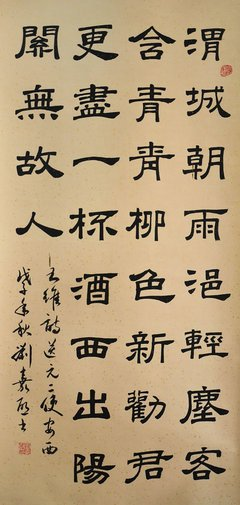 渭城朝雨浥輕塵客
舍青青柳色新勸君
更盡一杯酒西出陽
關無故人
王維詩送元二使安西
戊子年秋劉嘉書